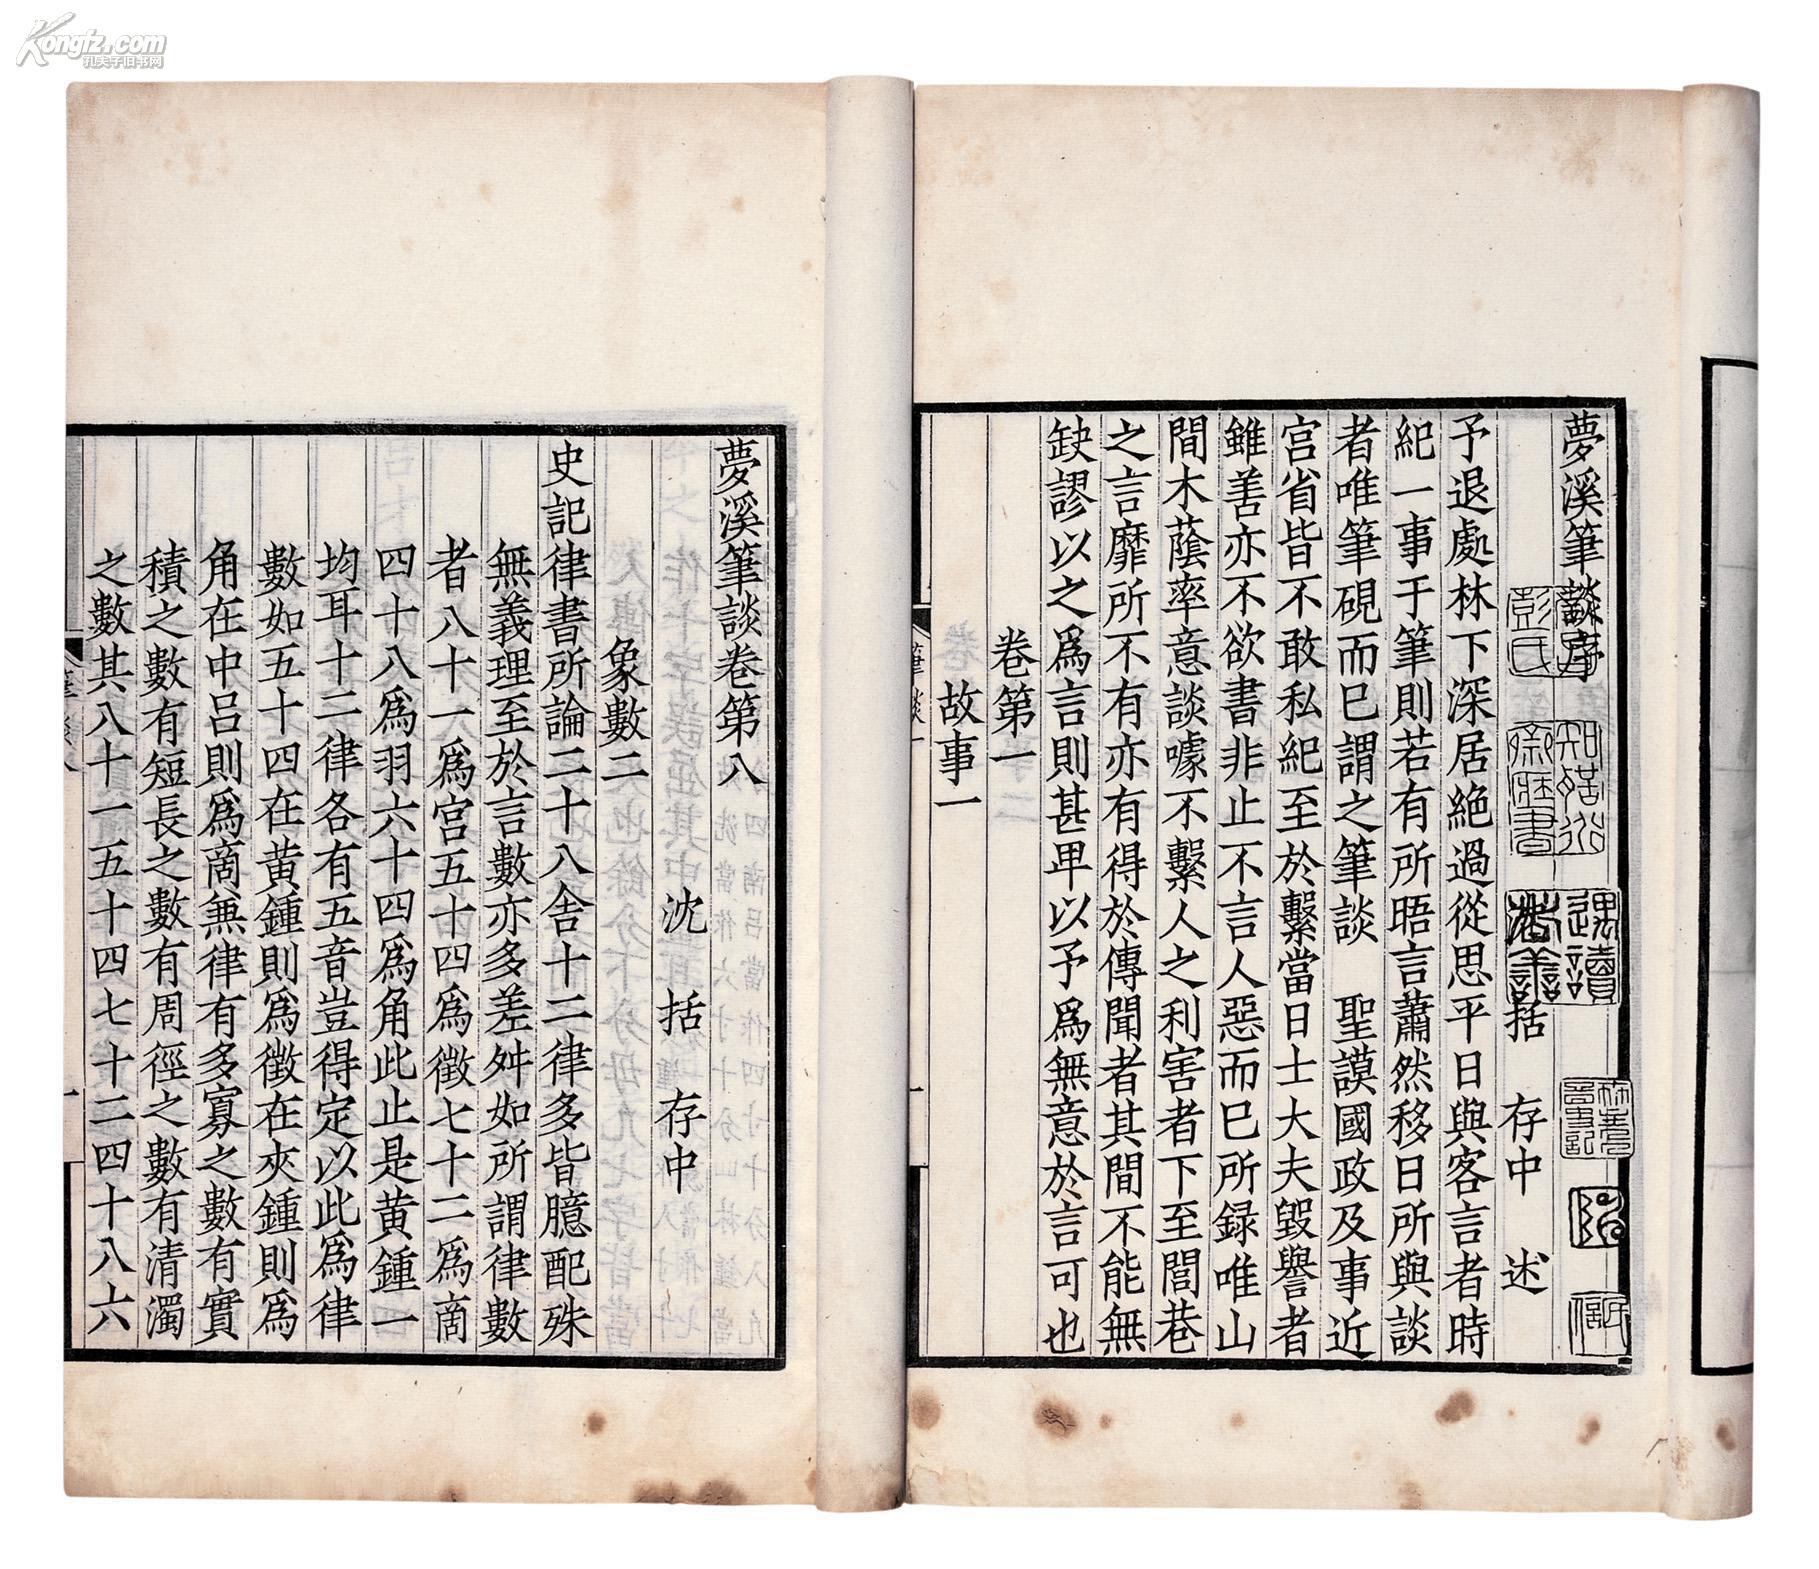 Kongfz.com
孔夫子旧书网
夢溪筆談序
括 存中 述
予退處林下深居絶過從思平日與客言者時
紀一事于筆則若有所晤言蕭然移日所與談
者唯筆硯而已謂之筆談 聖謨國政及事近
宮省皆不敢私紀至於繫當日士大夫毀譽者
雖善亦不欲書非止不言人惡而已所録唯山
間木蔭率意談噱不繫人之利害者下至閭巷
之言靡所不有亦有得於傳聞者其間不能無
缺謬以之爲言則甚卑以予爲無意於言可也
卷第一
故事一
夢溪筆談卷第八
沈 括 存中
象數二
史記律書所論二十八舍十二律多皆臆配殊
無義理至於言數亦多差舛如所謂律數
者八十一爲宮五十四爲徵七十二爲商
四十八爲羽六十四爲角此止是黄鍾一
均耳十二律各有五音豈得定以此爲律
數如五十四在黄鍾則爲徵在夾鍾則爲
角在中呂則爲商兼律有多寡之數有實
積之數有短長之數有周徑之數有清濁
之數其八十一五十四七十二四十八六